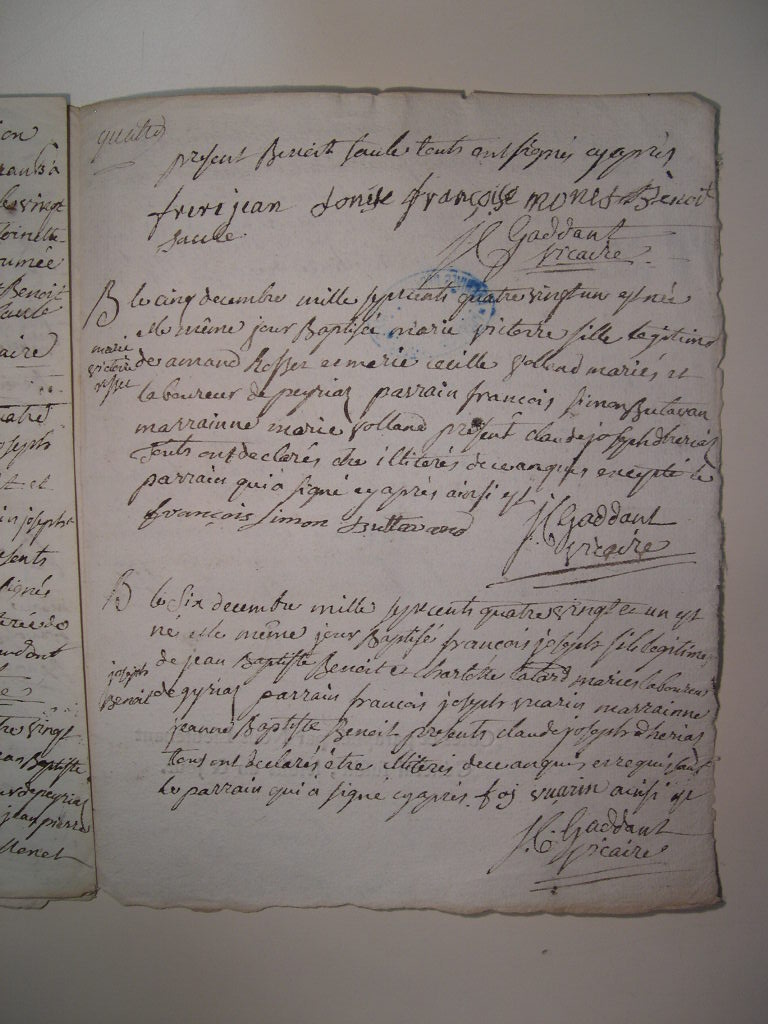 quatre
present Benoit saule touts ont signés cyaprès
frere jean Benoit
saule
J C Gaddant
vicaire
B le cinq decembre mille septcents quatre vingt un est née
et le même jour Baptisée marie victoire fille legitime
marie
victoire
rosset
de amand Rosset et marie cecille volland mariés et
laboureur de peyriaz parrain françois simon Butavan
marrainne marie volland présent claude joseph dherias
touts ont declarés etre illiterés de ce anquis excepté le
parrain qui a signé cyaprès ainsi est
françois simon Buttavand
J C Gaddant
vicaire
B le Six decembre mille septcents quatre vingt et un est
né et le même jour Baptisé françois joseph fils legitime
joseph
Benoit
de jean Baptiste Benoit et charlotte tatard mariés laboureur
de gyriaz parrain françois joseph vuarin marrainne
jeanne Baptiste Benoit presents claude joseph dherias
tous ont declarés être illiterés de ce anquis et requis sauf
le parrain qui a signé cyaprès f oj vuarin ainsi est
J C Gaddant
vicaire
ion
le vingt
Benoit
saule
aire
joseph
et
in joseph
sents
signés
vingt
Baptiste
de peyriaz
jean pierre